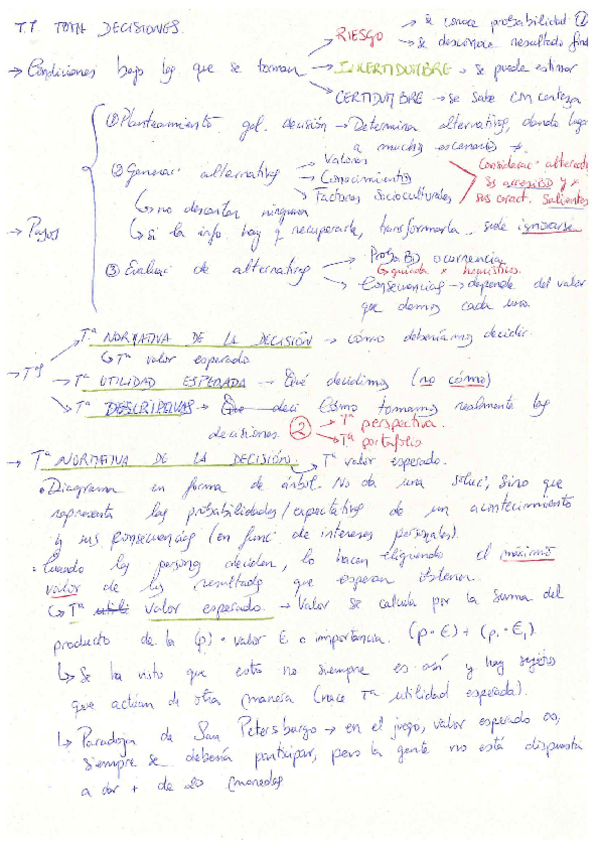 T.7. TOMA DECISIONES.
RIESGO → se conoce probabilidad
→ se desconoce resultado final
→ Condiciones bajo las que se toman → INCERTIDUMBRE → se puede estimar
CERTIDUMBRE → se sabe con certeza
→ Pasos
① Planteamiento gal. decisión → Determina alternativas, dando lugar
a muchos escenarios ≠.
② Generac. alternativas → Valores
→ Conocimientos
→ Factores socioculturales
Considerac. alternat.
sus caract. salientes
↳ no descartar ninguna
↳ si la info hay q recuperarla, transformarla.. suele ignorarse
③ Evaluac. de alternativas → Probab. ocurrencia
↳ guiada x heurísticos.
Consecuencias → depende del valor
que damos cada una.
→ Tªs
Tª NORMATIVA DE LA DECISIÓN → cómo deberíamos decidir.
↳ Tª valor esperado
→ Tª UTILIDAD ESPERADA → Qué decidimos (no cómo)
→ Tª DESCRIPTIVAS → Cómo tomamos realmente las
decisiones. ② → Tª perspectiva.
→ Tª portafolio.
→ Tª NORMATIVA DE LA DECISIÓN. → Tª valor esperado.
• Diagrama en forma de árbol. No da una soluc., sino que
representa las probabilidades/expectativas de un acontecimiento
y sus consecuencias (en func. de intereses personales).
• Cuando las personas deciden, lo hacen eligiendo el máximo
valor de los resultados que esperan obtener.
↳ Tª valor esperado. → Valor se calcula por la suma del
producto de la (p) · valor € o importancia. (p · €) + (p₁ · €₁).
↳ Se ha visto que esto no siempre es así y hay sujetos
que actúan de otra manera (nace Tª utilidad esperada).
↳ Paradoja de San Petersburgo → en el juego, valor esperado ∞;
siempre se debería participar, pero la gente no está dispuesta
a dar + de 20 monedas